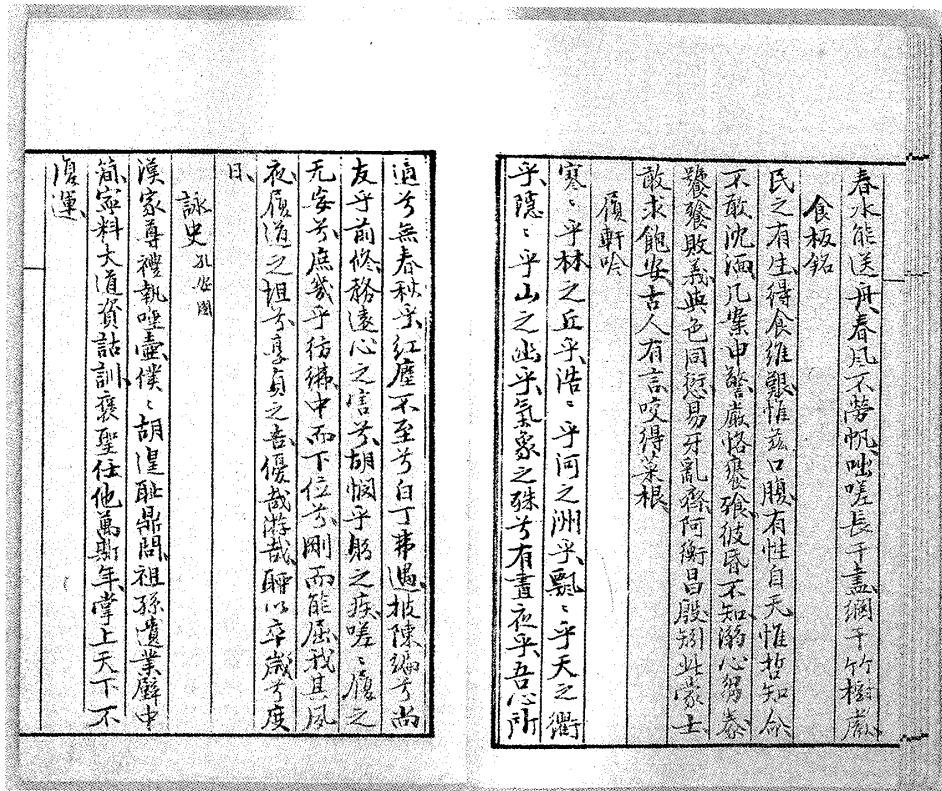 春水能送舟春風不勞帆咄嗟長干盡綱于竹樹歲
食板銘
民之有生得食維艱惟茲口腹有性自天惟哲知命
不敢沈湎几案中警嚴恪饔飧彼昏不知溺心芻豢
饕餮敗義與色同愆易牙亂齊阿衡昌殷矧此家士
敢求飽安古人有言咬得菜根
履軒吟
寒〻乎林之丘乎浩〻乎河之洲乎飄〻乎天之衢
乎隱〻乎山之幽乎氣象之殊兮有晝夜乎吾心所
適兮無春秋乎紅塵不至兮白丁弗遇披陳編兮尚
友乎前修務遠心之害兮胡憫乎躬之疾嗟〻履之
无妄兮庶幾乎彷彿中而下位兮剛而能屈我其夙
夜履道之坦兮享貞之吉優哉游哉聊以卒歲兮度
日
詠史 孔安國
漢家尊禮執唾壺僕〻胡遑恥鼎問祖孫遺業壁中
簡寧料大道資詁訓褒聖仕他萬斯年掌上天下不
復運